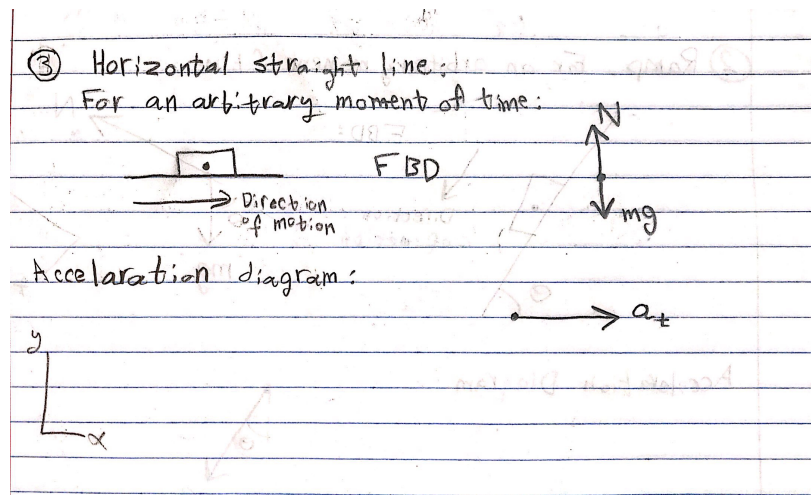 ③ Horizontal straight line:
For an arbitrary moment of time:
FBD
N
mg
Direction
of motion
Accelaration diagram:
a_t
y
x